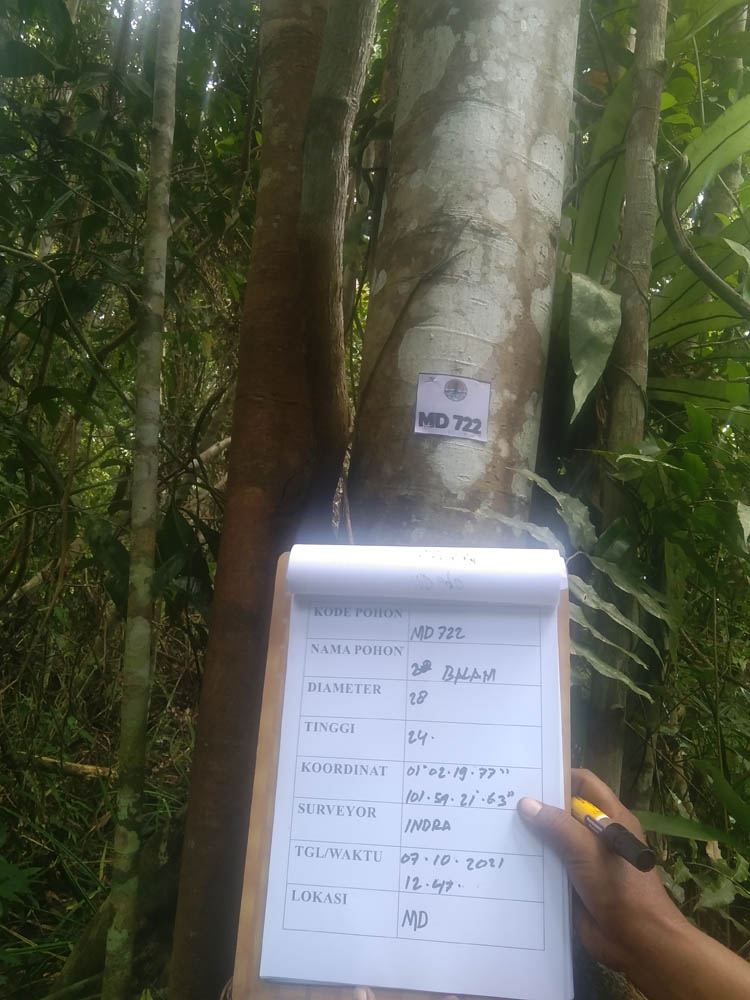 MD 722
KODE POHON MD 722
NAMA POHON BALAM
DIAMETER 28
TINGGI 24.
KOORDINAT 01°02.19.77"
101.59.21.63"
SURVEYOR INDRA
TGL/WAKTU 07.10.2021
12.47.
LOKASI MD